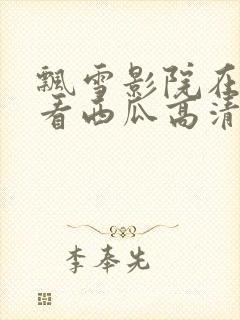 飘雪影院在
看西瓜高清
李奉先